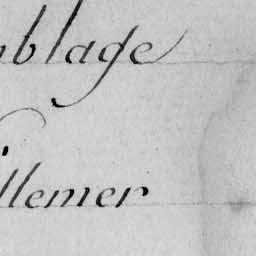 blage
llemer